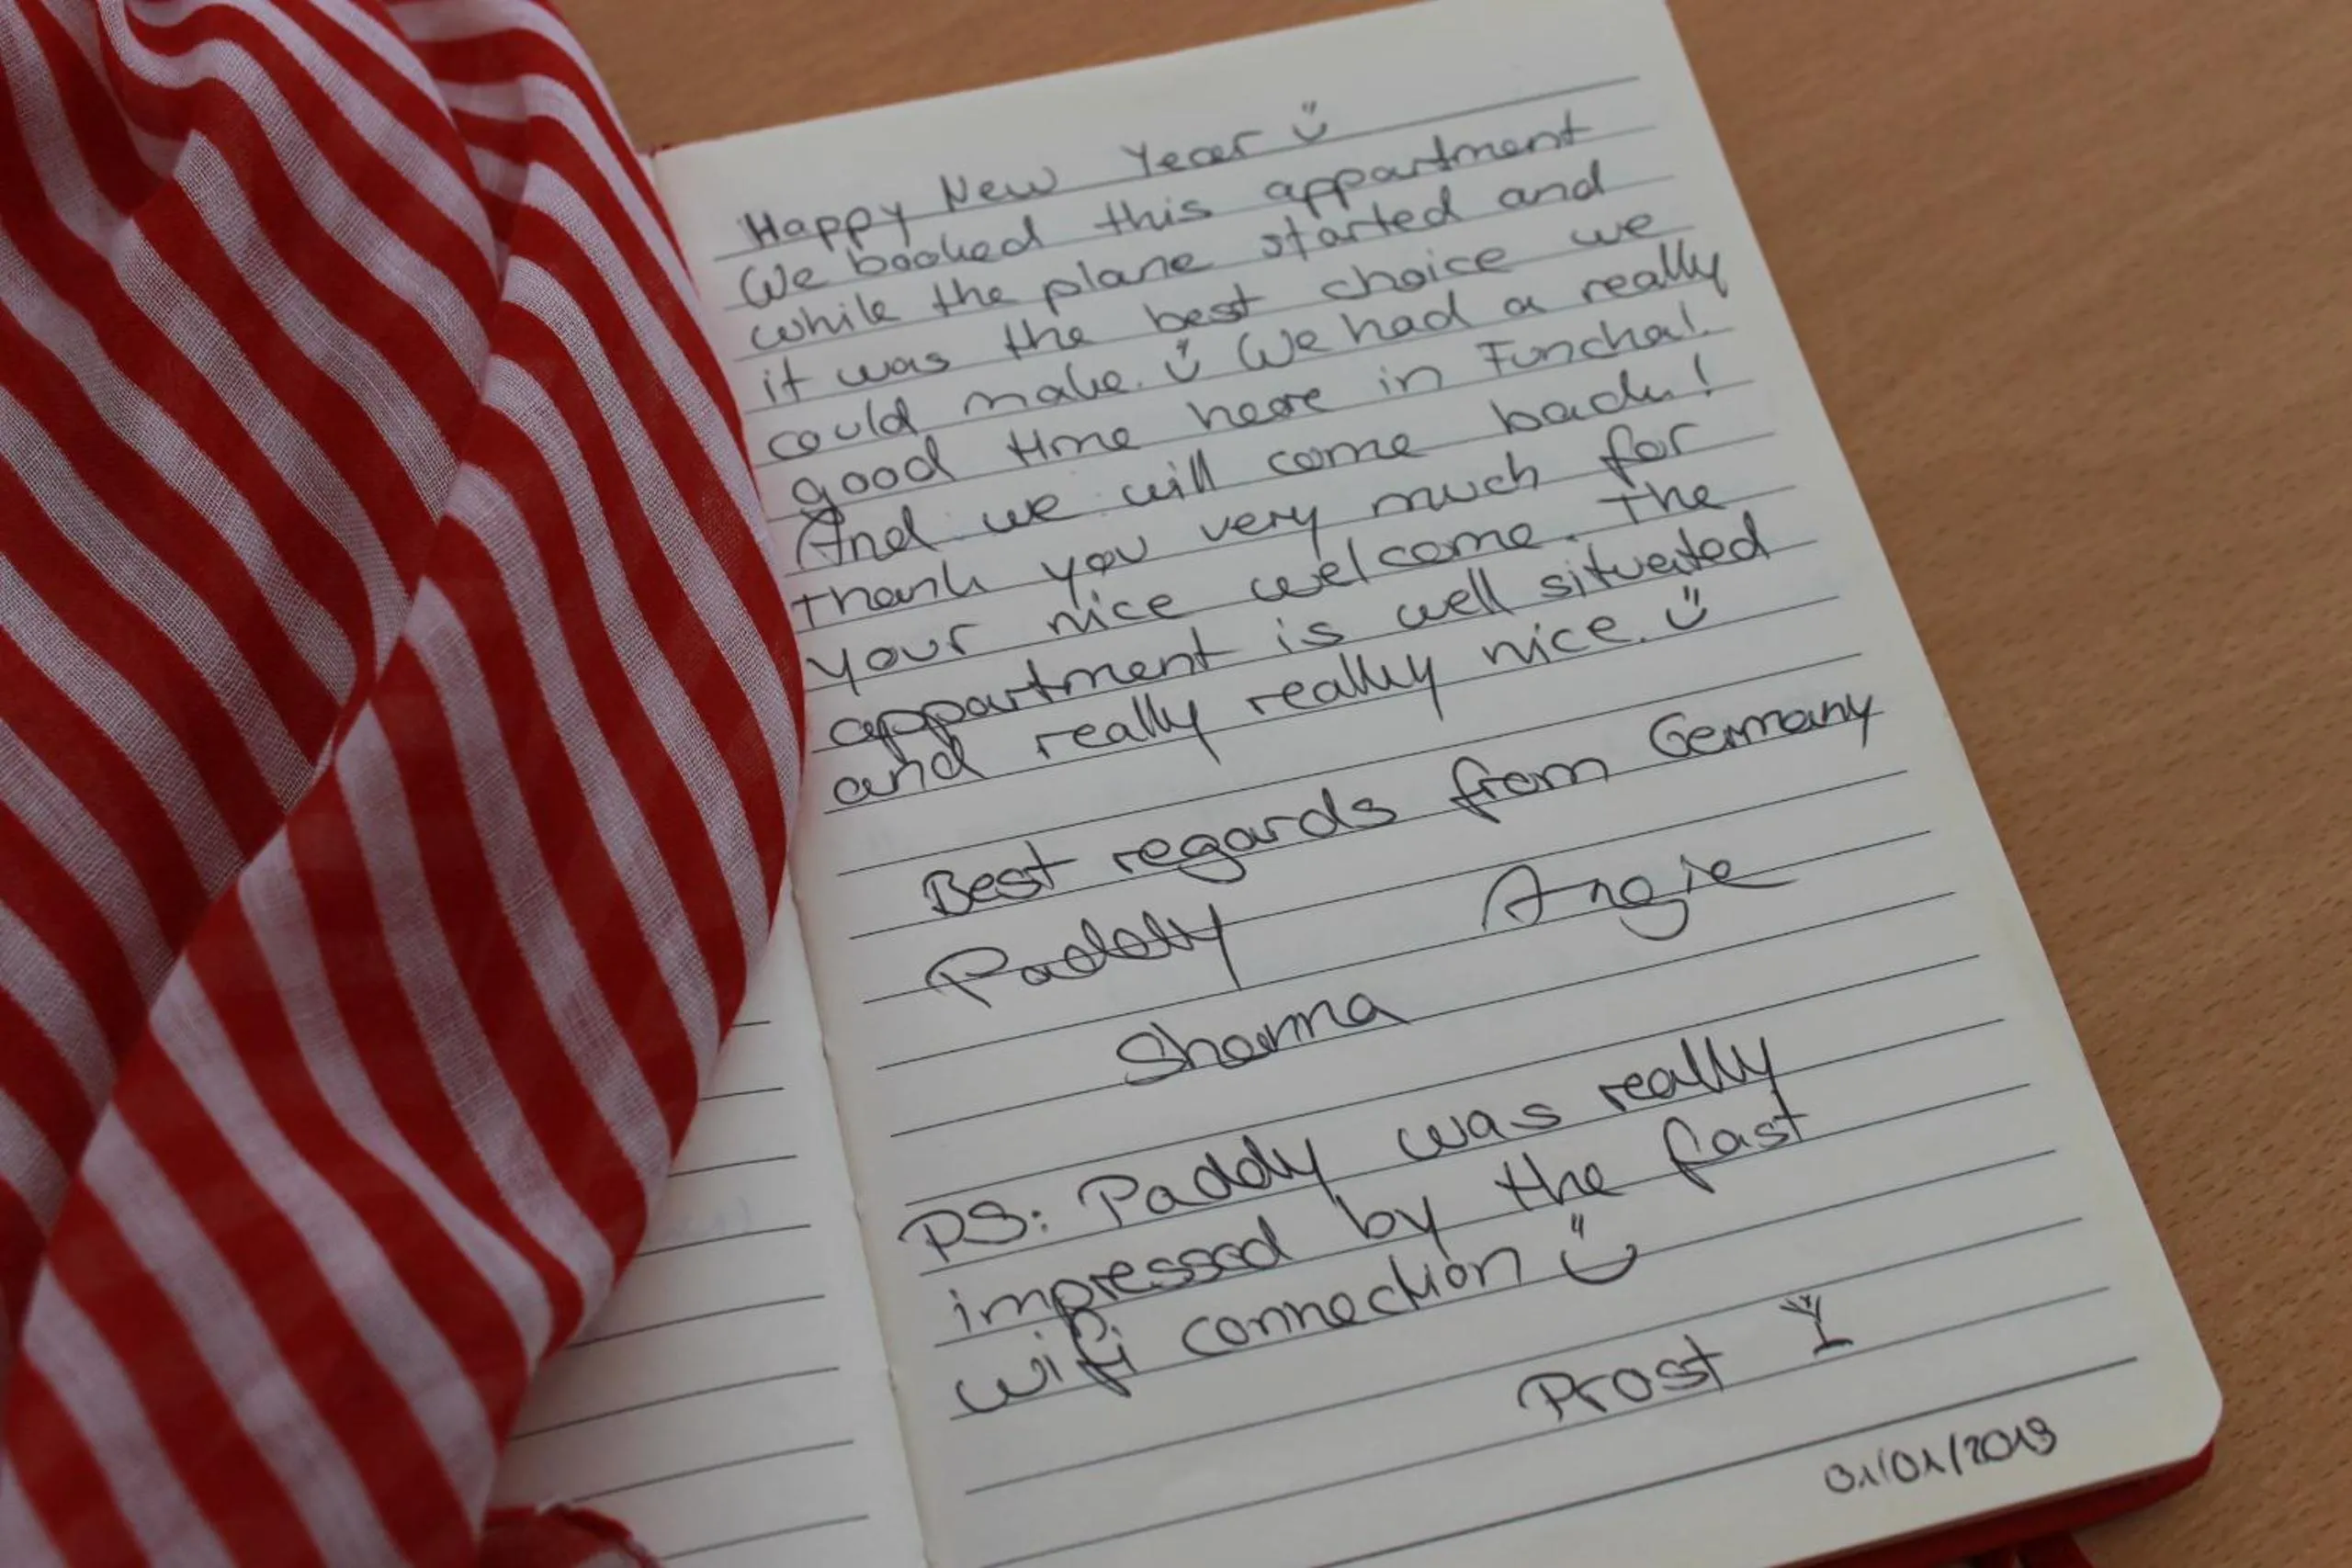 Happy New Year
We booked this appartment
while the plane started and
it was the best choice we
could make. We had a really
good time here in Funchal.
And we will come back!
Thank you very much for
your nice welcome. The
appartment is well situated
and really really nice.
Best regards from Germany
Paddy Angie
Shanna
PS: Paddy was really
impressed by the fast
wifi connection
Prost
01/01/2019